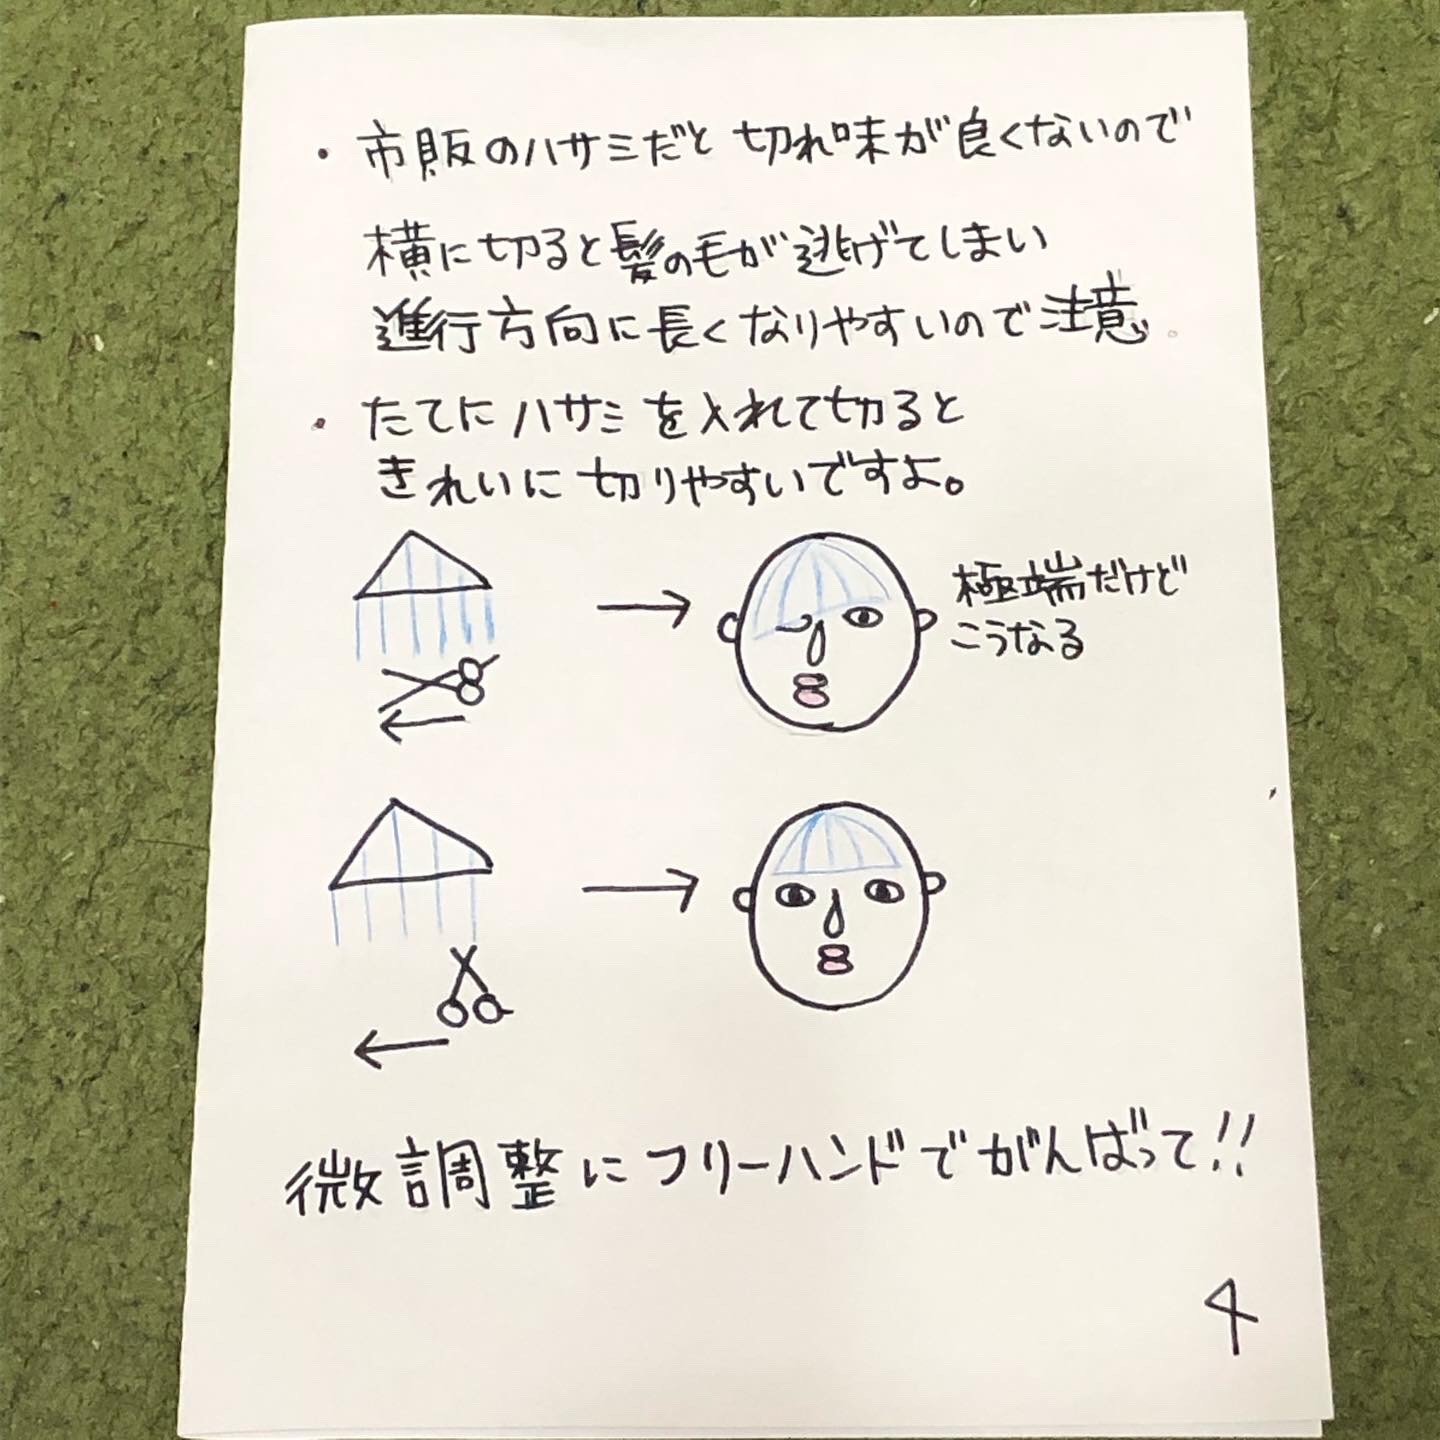 ・市販のハサミだと切れ味が良くないので
横に切ると髪の毛が逃げてしまい
進行方向に長くなりやすいので注意。
・たてにハサミを入れて切ると
きれいに切りやすいですよ。
極端だけど
こうなる
微調整にフリーハンドでがんばって!!
4